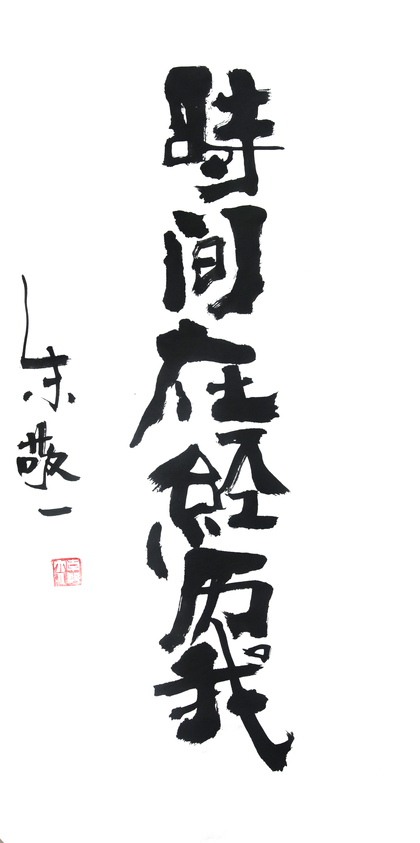 時间在经历我
朱敬一